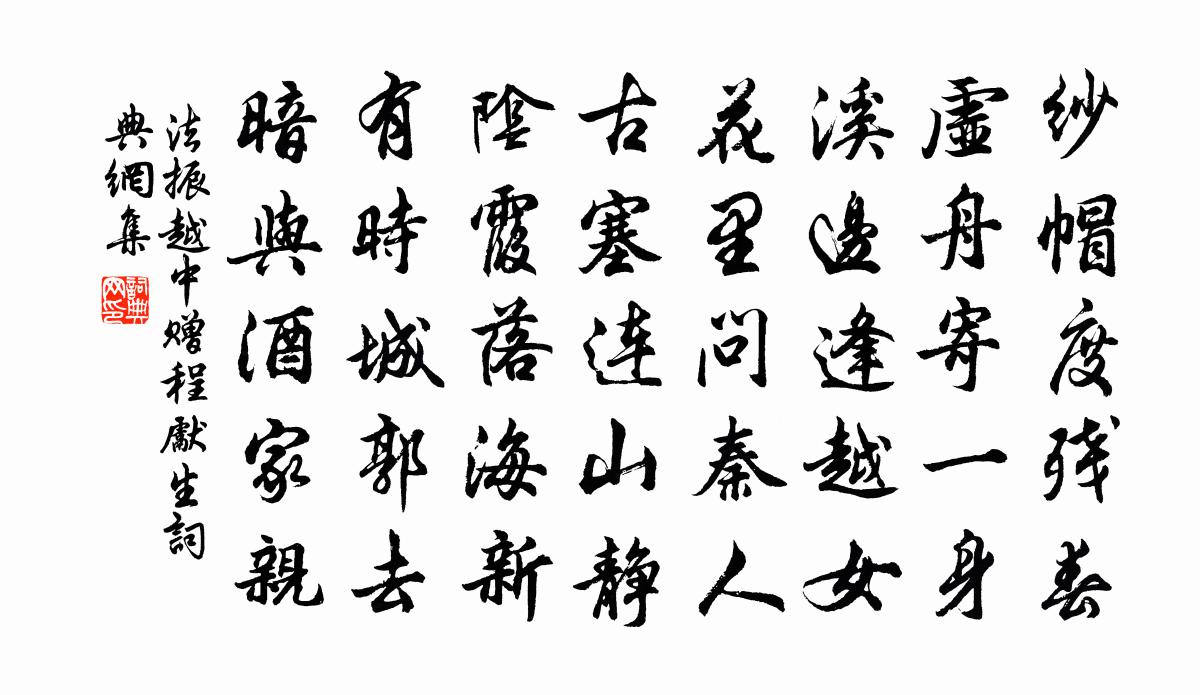 紗帽度残春
虛舟寄一身
溪邊逢越女
花里問秦人
古塞連山静
陰霞落海新
有時城郭去
暗與酒家親
法振越中贈程獻生詞
典網集
詞典
网印